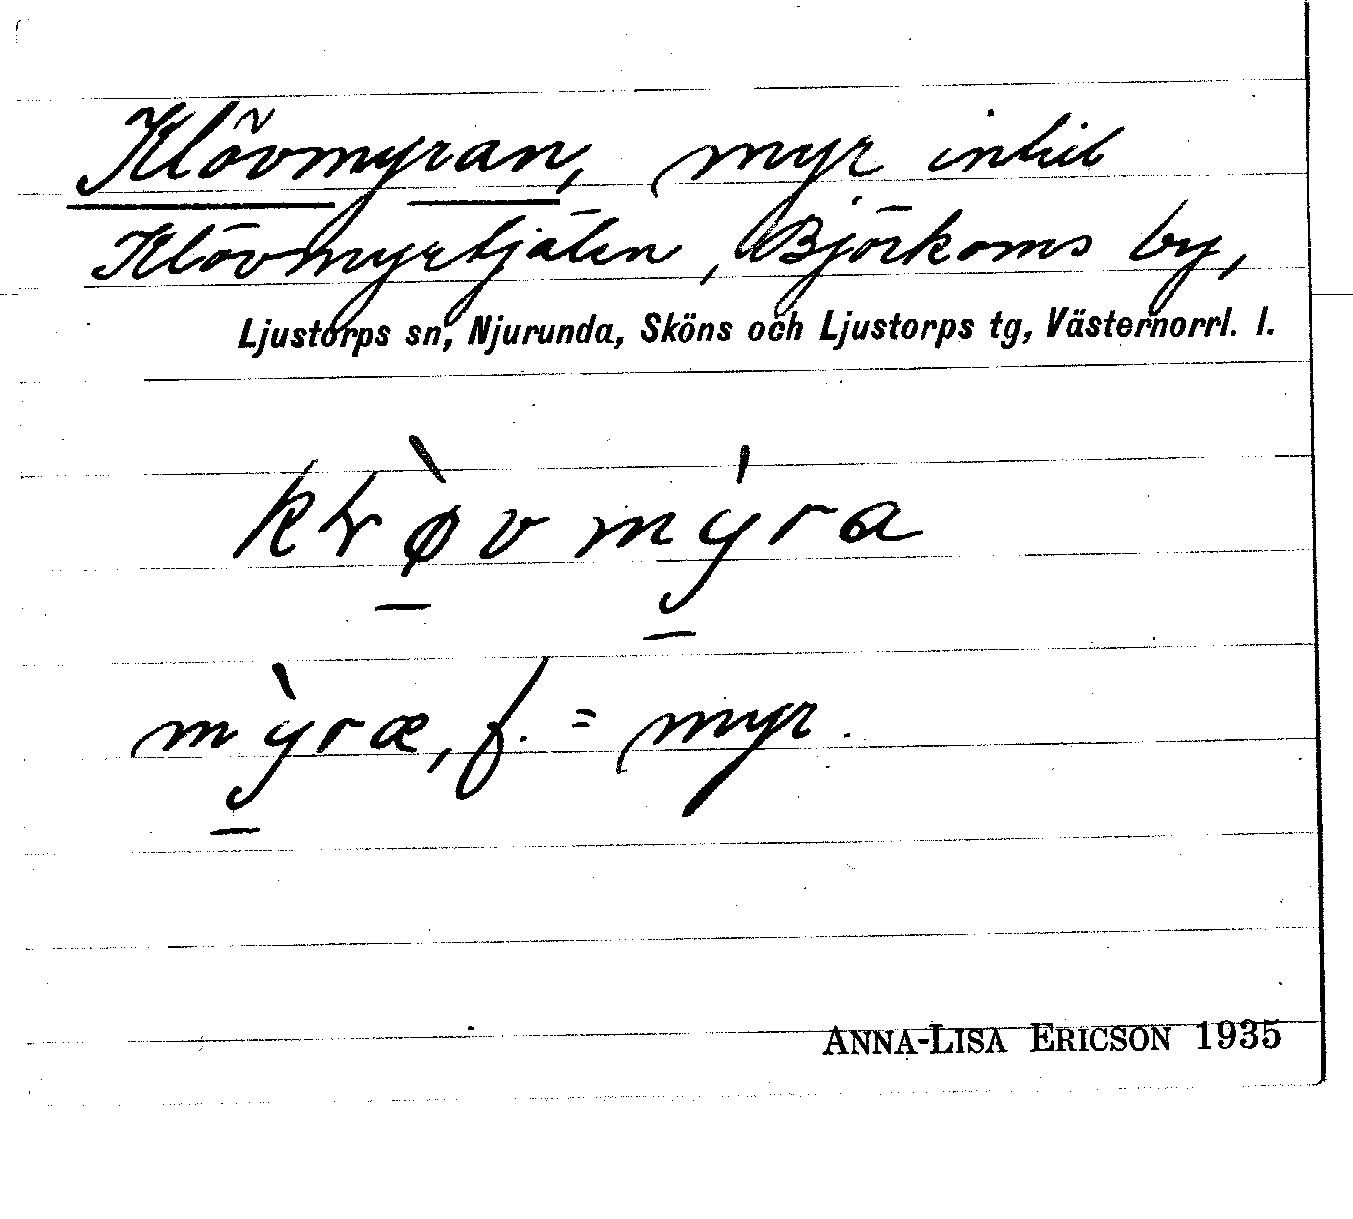 Klövmyran, myr intill
Klövmyrtjälen, Björkoms by,
Ljustorps sn, Njurunda, Sköns och Ljustorps tg, Västernorrl. l.
mỳræ, f. = myr.
ANNA-LISA ERICSON 1935